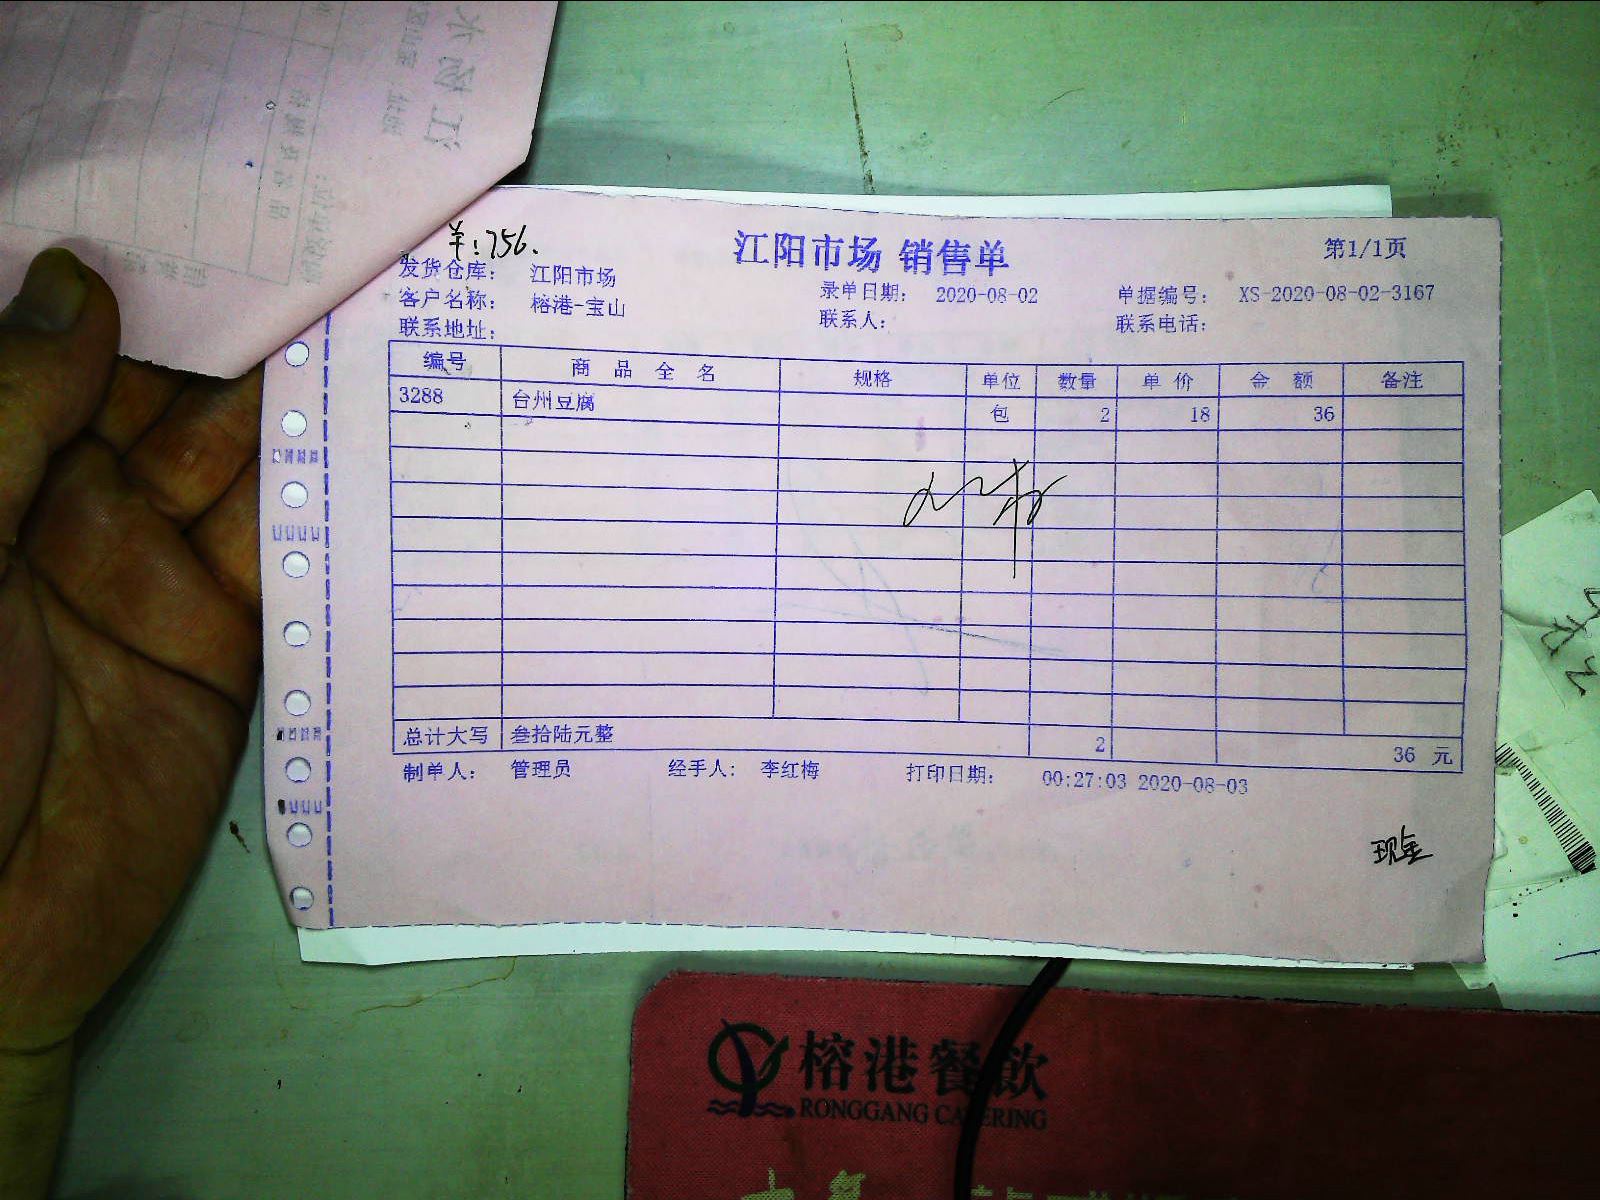 江杨水
品名及规格
￥:756.
江阳市场 销售单
第1/1页
发货仓库： 江阳市场
客户名称： 榕港-宝山
联系地址：
录单日期： 2020-08-02
联系人：
单据编号： XS-2020-08-02-3167
联系电话：
编号 商 品 全 名 规格 单位 数量 单 价 金 额 备注
3288 台州豆腐 包 2 18 36
总计大写 叁拾陆元整 2 36 元
制单人： 管理员 经手人： 李红梅 打印日期： 00:27:03 2020-08-03
现金
榕港餐飲
RONGGANG CATERING